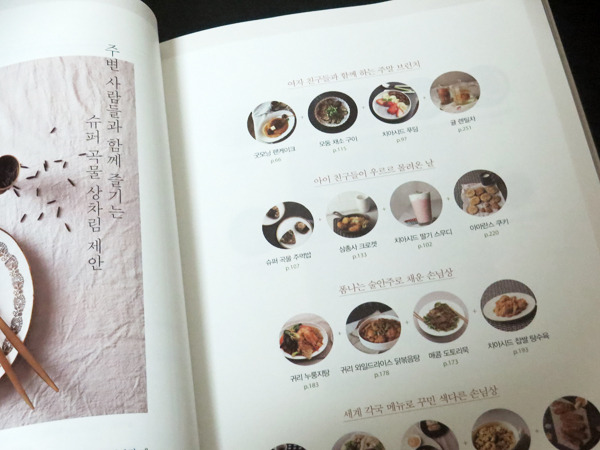 주변 사람들과 함께 즐기는
슈퍼 곡물 상차림 제안
여자 친구들과 함께 하는 주말 브런치
굿모닝 팬케이크
p.66
모둠 채소 구이
p.115
치아시드 푸딩
p.97
귤 렌틸차
p.251
아이 친구들이 우르르 몰려온 날
슈퍼 곡물 주먹밥
p.107
삼총사 크로켓
p.133
치아시드 딸기 스무디
p.102
아마란스 쿠키
p.220
폼나는 술안주로 채운 손님상
귀리 누룽지탕
p.183
귀리 와일드라이스 닭볶음탕
p.178
매콤 도토리묵
p.173
치아시드 찹쌀 탕수육
p.193
세계 각국 메뉴로 꾸민 색다른 손님상